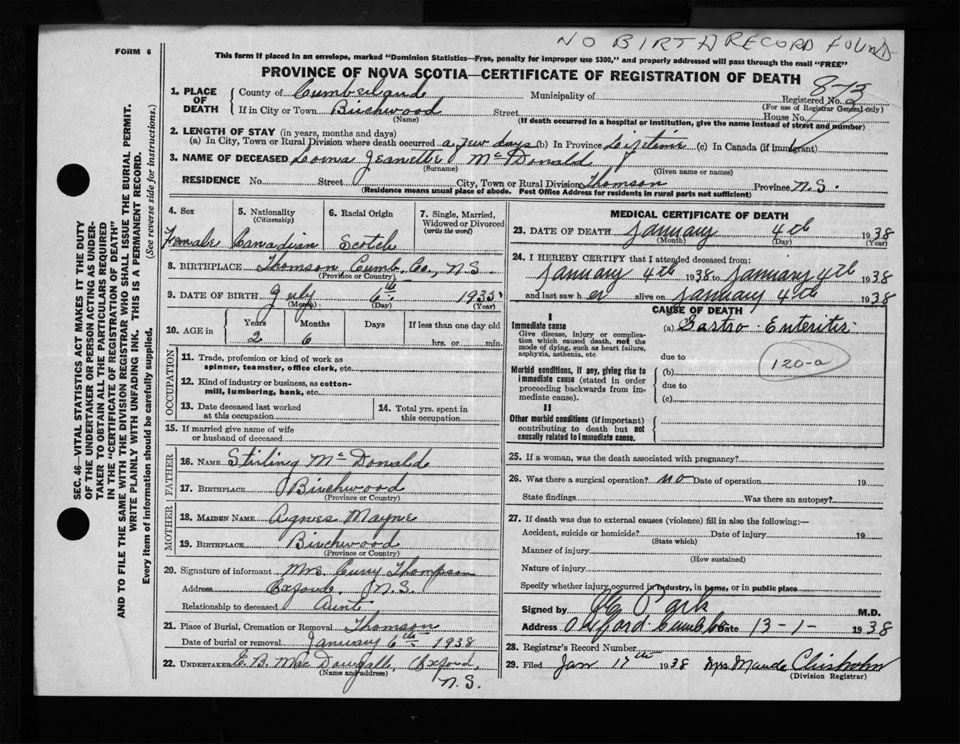 NO BIRTH RECORD FOUND
FORM 6
This form if placed in an envelope, marked "Dominion Statistics—Free, penalty for improper use $300," and properly addressed will pass through the mail "FREE"
PROVINCE OF NOVA SCOTIA—CERTIFICATE OF REGISTRATION OF DEATH
SEC. 46—VITAL STATISTICS ACT MAKES IT THE DUTY
OF THE UNDERTAKER OR PERSON ACTING AS UNDER-
TAKER TO OBTAIN ALL THE PARTICULARS REQUIRED
IN THE "CERTIFICATE OF REGISTRATION OF DEATH"
AND TO FILE THE SAME WITH THE DIVISION REGISTRAR WHO SHALL ISSUE THE BURIAL PERMIT.
WRITE PLAINLY WITH UNFADING INK. THIS IS A PERMANENT RECORD.
Every item of information should be carefully supplied. (See reverse side for instructions.)
1. PLACE OF DEATH
County of Cumberland Municipality of Registered No.
8-13
(For use of Registrar General only)
If in City or Town Birchwood Street House No.
(Name) (If death occurred in a hospital or institution, give the name instead of street and number)
2. LENGTH OF STAY (in years, months and days)
(a) In City, Town or Rural Division where death occurred a few days (b) In Province Lifetime (c) In Canada (if immigrant)
3. NAME OF DECEASED Lorna Jeanette McDonald
(Surname) (Given name or names)
RESIDENCE No. Street City, Town or Rural Division Thomson Province N.S.
(Residence means usual place of abode. Post Office Address for residents in rural parts not sufficient)
4. Sex 5. Nationality (Citizenship) 6. Racial Origin 7. Single, Married, Widowed or Divorced (write the word)
Female Canadian Scotch
8. BIRTHPLACE Thomson Cumb. Co., N.S.
(Province or Country)
9. DATE OF BIRTH July 6th 1935
(Month) (Day) (Year)
10. AGE in Years Months Days If less than one day old
2 6 hrs. or min.
OCCUPATION
11. Trade, profession or kind of work as
spinner, teamster, office clerk, etc.
12. Kind of industry or business, as cotton-
mill, lumbering, bank, etc.
13. Date deceased last worked
at this occupation
14. Total yrs. spent in
this occupation
15. If married give name of wife
or husband of deceased
FATHER
16. NAME Stirling McDonald
17. BIRTHPLACE Birchwood
(Province or Country)
MOTHER
18. MAIDEN NAME Agnes Mayne
19. BIRTHPLACE Birchwood
(Province or Country)
20. Signature of informant Mrs. Curry Thompson
Address Oxford, N.S.
Relationship to deceased Aunt
21. Place of Burial, Cremation or Removal Thomson
Date of burial or removal January 6th 1938
22. UNDERTAKER E. B. MacDougall, Oxford,
(Name and address)
N.S.
MEDICAL CERTIFICATE OF DEATH
23. DATE OF DEATH January 4th 1938
(Month) (Day) (Year)
24. I HEREBY CERTIFY that I attended deceased from:
January 4th 1938 to January 4th 1938
and last saw her alive on January 4th 1938
CAUSE OF DEATH
I
Immediate cause
Give disease, injury or complica-
tion which caused death, not the
mode of dying, such as heart failure,
asphyxia, asthenia, etc.
(a) Gastro Enteritis
due to
Morbid conditions, if any, giving rise to
immediate cause (stated in order
proceeding backwards from im-
mediate cause).
(b)
120-a
due to
(c)
II
Other morbid conditions (if important)
contributing to death but not
causally related to immediate cause.
25. If a woman, was the death associated with pregnancy?
26. Was there a surgical operation? no Date of operation 19
State findings Was there an autopsy?
27. If death was due to external causes (violence) fill in also the following:—
Accident, suicide or homicide? Date of injury 19
(State which)
Manner of injury
(How sustained)
Nature of injury
Specify whether injury occurred in industry, in home, or in public place
Signed by M.D.
Address Oxford Cumb Co Date 13-1- 1938
28. Registrar's Record Number
29. Filed Jan 17th 1938 Mrs Maude Chisholm
(Division Registrar)